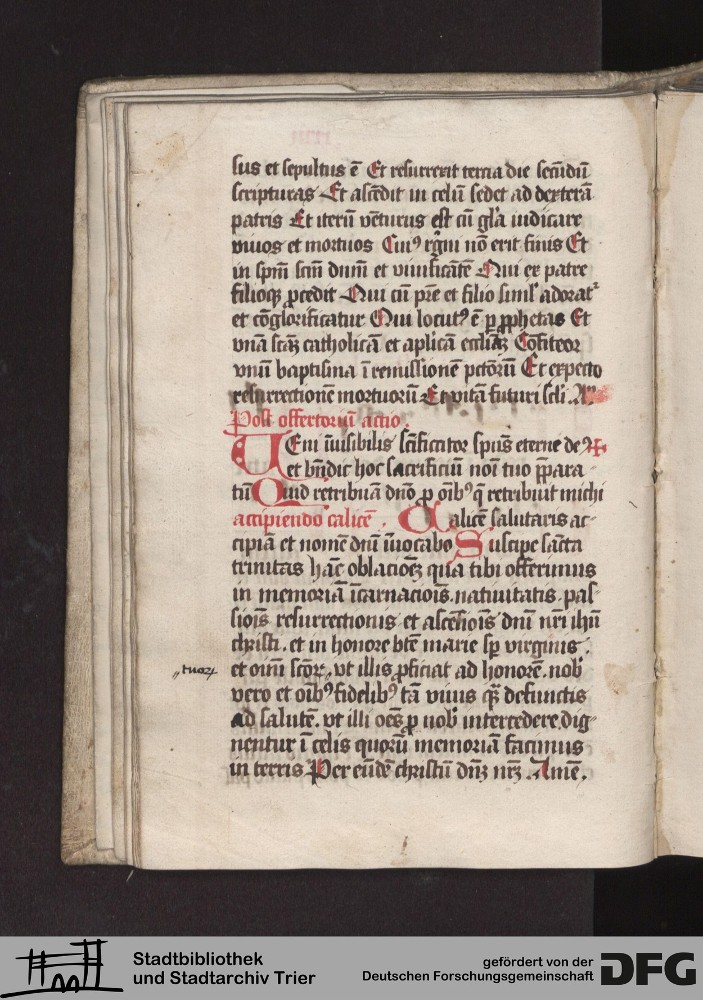 sus et sepultus ē Et resurrexit tercia die secūdū
scripturas Et ascēdit in celū sedet ad dexterā
patris Et iterū vēturus est cū glā iudicare
viuos et mortuos Cuiꝰ rgni nō erit finis Et
in spm̄ scm̄ dnm̄ et viuificātē Qui ex patre
filioqꝫ ꝓcedit Qui cū pr̄e et filio simlˀ adorat᷑
et cōglorificatur Qui locutꝰ ē ꝑ ꝓphetas Et
vnā scāꝫ catholicā et aplicā ecclīaꝫ Cōfiteor
vnū baptisma ī remissionē pctorū Et expecto
resurrectionē mortuorū Et vitā futuri seli Am̄
Post offertoriū actio.
UEni īuisibilis sc̄ificator spūs eterne deꝰ ✠
et bn̄dic hoc sacrificiū noī tuo p̄para
tū Quid retribuā dn̄o ꝓ oīb᷒ q̄ retribuit michi
accipiendo calicē. Calicē salutaris ac-
cipiā et nomē dnī īuocabo Suscipe sācta
trinitas hāc oblacioēꝫ quā tibi offerimus
in memoriā īcarnacioīs. natiuitatis. pas-
sioīs resurrectionis et ascēsioīs dnī nrī ihū
christi. et in honore btē marie sp̄ virginis.
et oīm scōꝝ, vt illis ꝓficiat ad honorē. nob̄
„tuoꝝ
vero et oīb᷒ fidelib᷒ tā viuis qͣ̄ defunctis
ad salutē. vt illi oēs ꝓ nob̄ intercedere dig-
nentur ī celis quorū memoriā facimus
in terris Per eūdē christū dn̄ꝫ nr̄ꝫ. Amē.
Stadtbibliothek
und Stadtarchiv Trier
gefördert von der
Deutschen Forschungsgemeinschaft
DFG